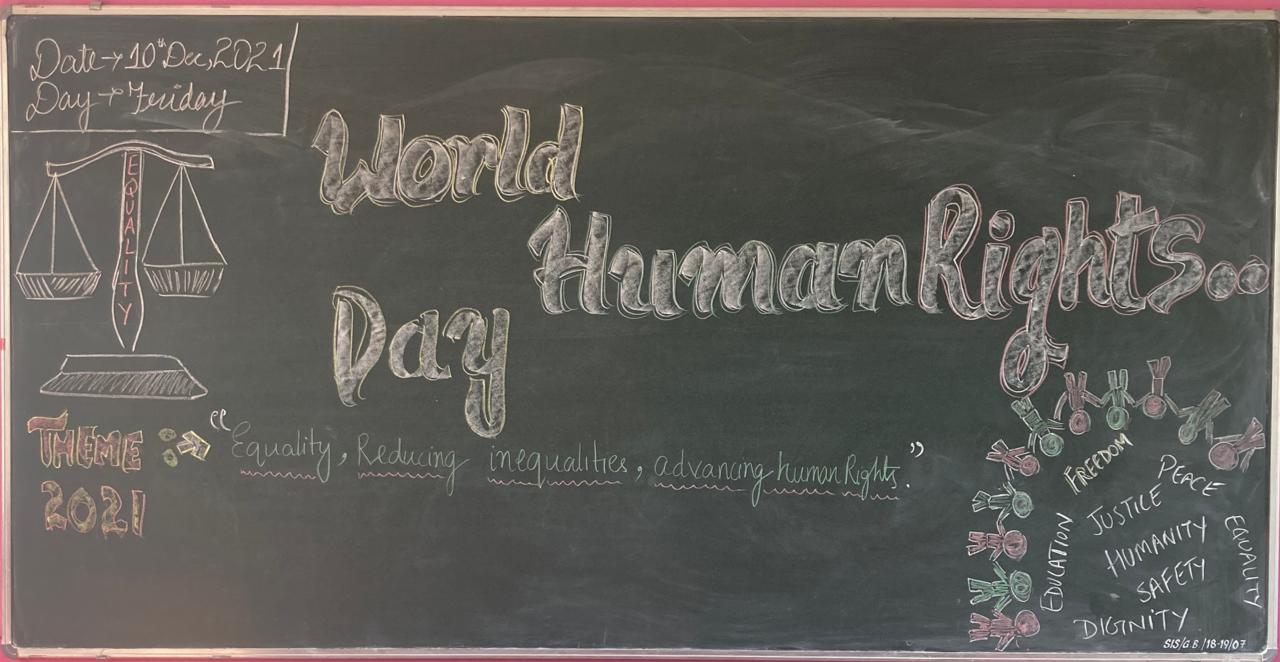 Date → 10th Dec, 2021
Day → Friday
EQUALITY
World
Human Rights...
Day
THEME :⇒ "Equality, Reducing inequalities, advancing human Rights."
2021
FREEDOM
PEACE
JUSTICE
EDUCATION
HUMANITY
EQUALITY
SAFETY
DIGNITY
SIS/G.B./18-19/07